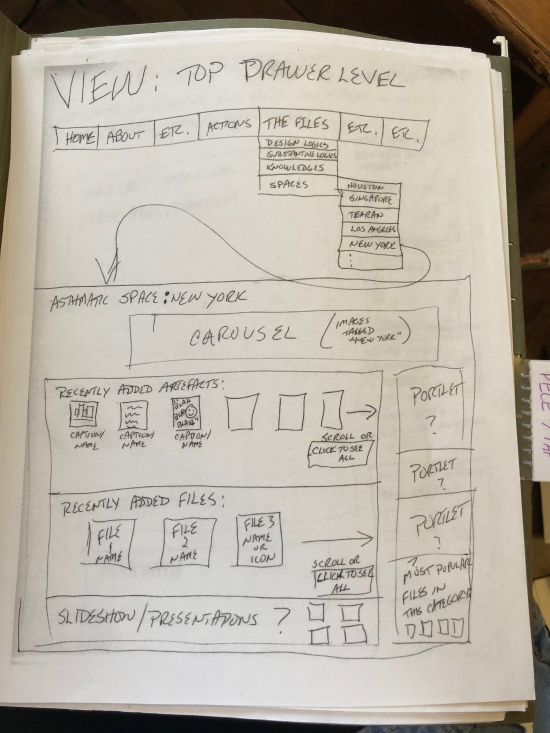 VIEW: TOP DRAWER LEVEL
HOME ABOUT ETC. ACTIONS THE FILES ETC. ETC.
DESIGN LOGICS
SUBSTANTIVE LOGICS
KNOWLEDGES
SPACES
HOUSTON
SINGAPORE
TEHRAN
LOS ANGELES
NEW YORK
ASTHMATIC SPACE: NEW YORK
CAROUSEL
(IMAGES
TAGGED
"NEW YORK")
RECENTLY ADDED ARTEFACTS:
BLAH
BLAH
BLAH
CAPTION/
NAME
CAPTION/
NAME
CAPTION/
NAME
SCROLL OR
CLICK TO SEE
ALL
PORTLET
?
PORTLET
?
RECENTLY ADDED FILES:
FILE
1
NAME
FILE
2
NAME
FILE 3
NAME
OR
ICON
SCROLL OR
CLICK TO SEE
ALL
PORTLET
?
SLIDESHOW/PRESENTATIONS ?
MOST POPULAR
FILES IN
THIS CATEGORY?
PECE